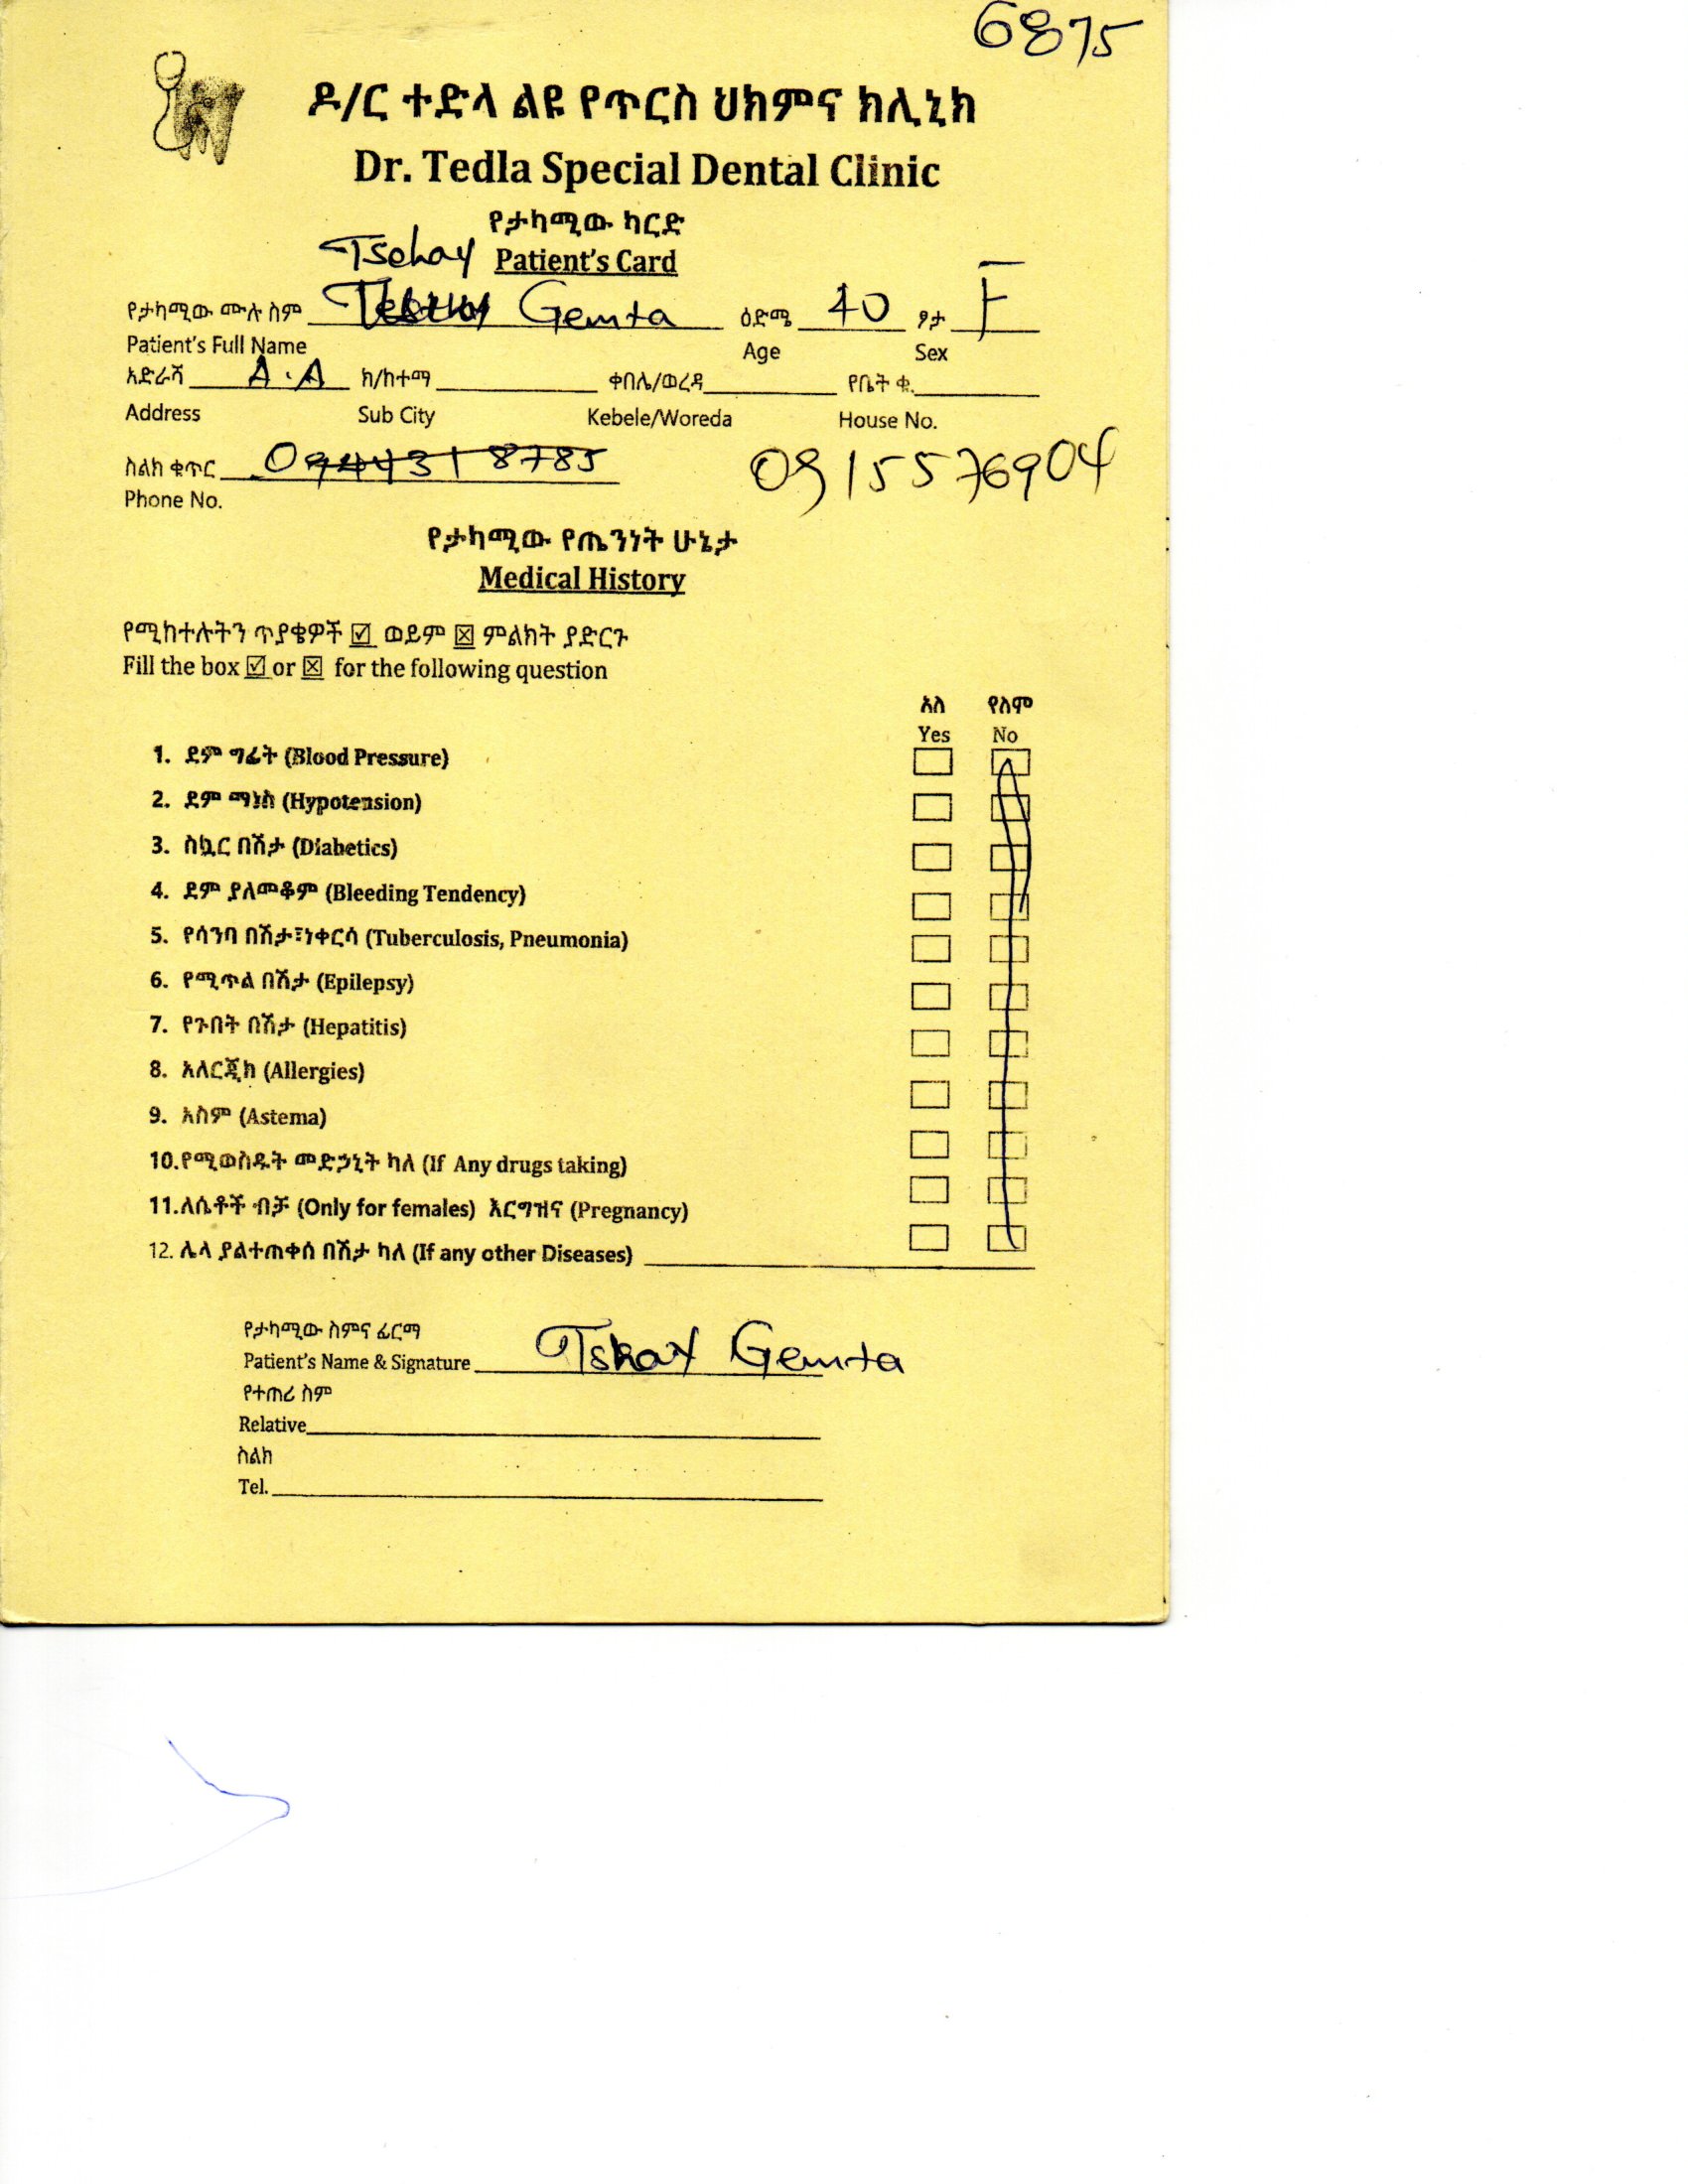 6875
ዶ/ር ተድላ ልዩ የጥርስ ህክምና ክሊኒክ
Dr. Tedla Special Dental Clinic
የታካሚው ካርድ
Tsehay Patient's Card
የታካሚው ሙሉ ስም Gemta ዕድሜ 40 ፆታ F
Patient's Full Name Age Sex
አድራሻ A.A ክ/ከተማ ቀበሌ/ወረዳ የቤት ቁ.
Address Sub City Kebele/Woreda House No.
ስልክ ቁጥር 0915576904
Phone No.
የታካሚው የጤንነት ሁኔታ
Medical History
የሚከተሉትን ጥያቄዎች ☑ ወይም ☒ ምልክት ያድርጉ
Fill the box ☑ or ☒ for the following question
አለ የለም
Yes No
1. ደም ግፊት (Blood Pressure)
2. ደም ማነስ (Hypotension)
3. ስኳር በሽታ (Diabetics)
4. ደም ያለመቆም (Bleeding Tendency)
5. የሳንባ በሽታ፣ነቀርሳ (Tuberculosis, Pneumonia)
6. የሚጥል በሽታ (Epilepsy)
7. የጉበት በሽታ (Hepatitis)
8. አለርጂክ (Allergies)
9. አስም (Astema)
10.የሚወስዱት መድኃኒት ካለ (If Any drugs taking)
11.ለሴቶች ብቻ (Only for females) እርግዝና (Pregnancy)
12. ሌላ ያልተጠቀሰ በሽታ ካለ (If any other Diseases)
የታካሚው ስምና ፊርማ
Patient's Name & Signature Tshay Gemta
የተጠሪ ስም
Relative
ስልክ
Tel.